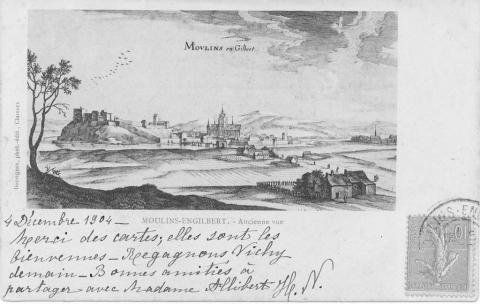 MOVLINS en Gilbert
Desvignes, phot.-édit., Clamecy
MOULINS-ENGILBERT. - Ancienne vue
4 Décembre 1904 -
Merci des cartes; elles sont les
bienvenues - Regagnons Vichy
demain - Bonnes amitiés à
partager avec Madame Allibert H. N.
NS-EN
10